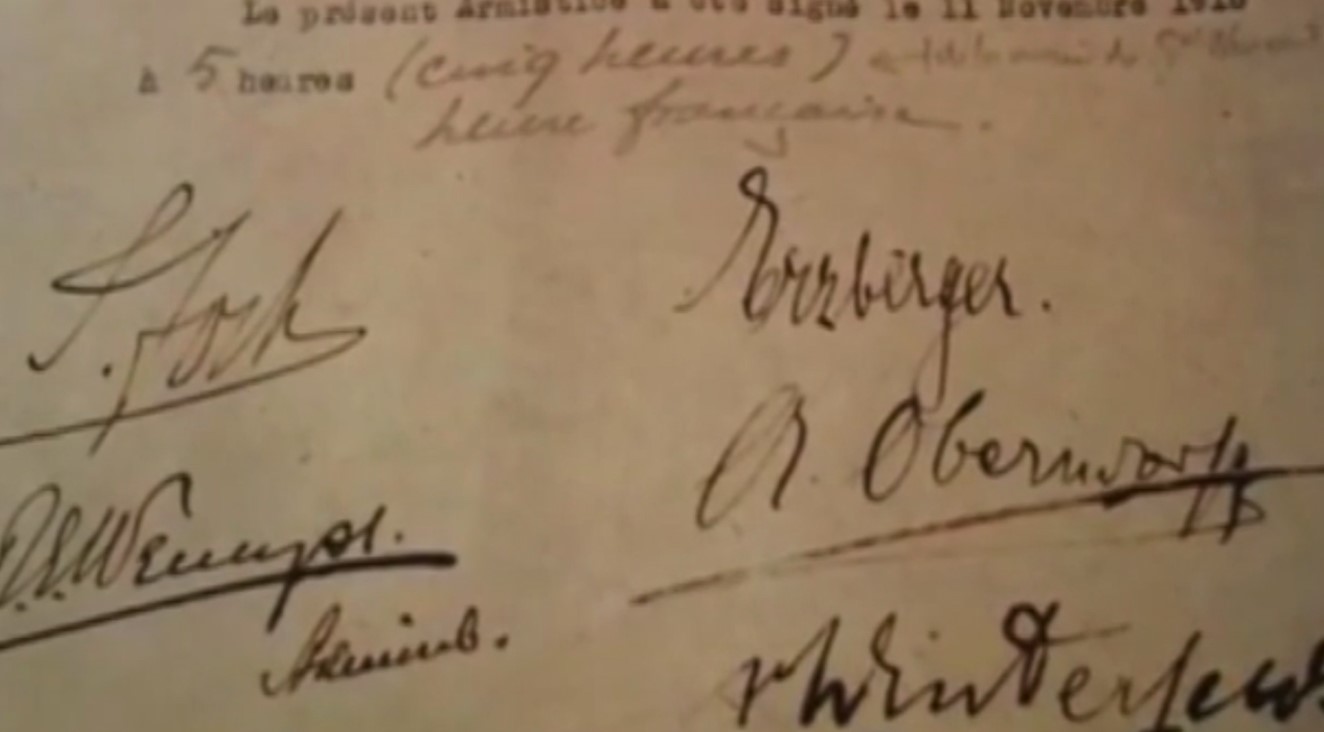 Le présent Armistice a été signé le 11 Novembre 1918
à 5 heures (cinq heures)
heure française.
F. Foch
Erzberger.
A. Oberndorff
R.E. Wemyss.
Admiral.
v Winterfeldt